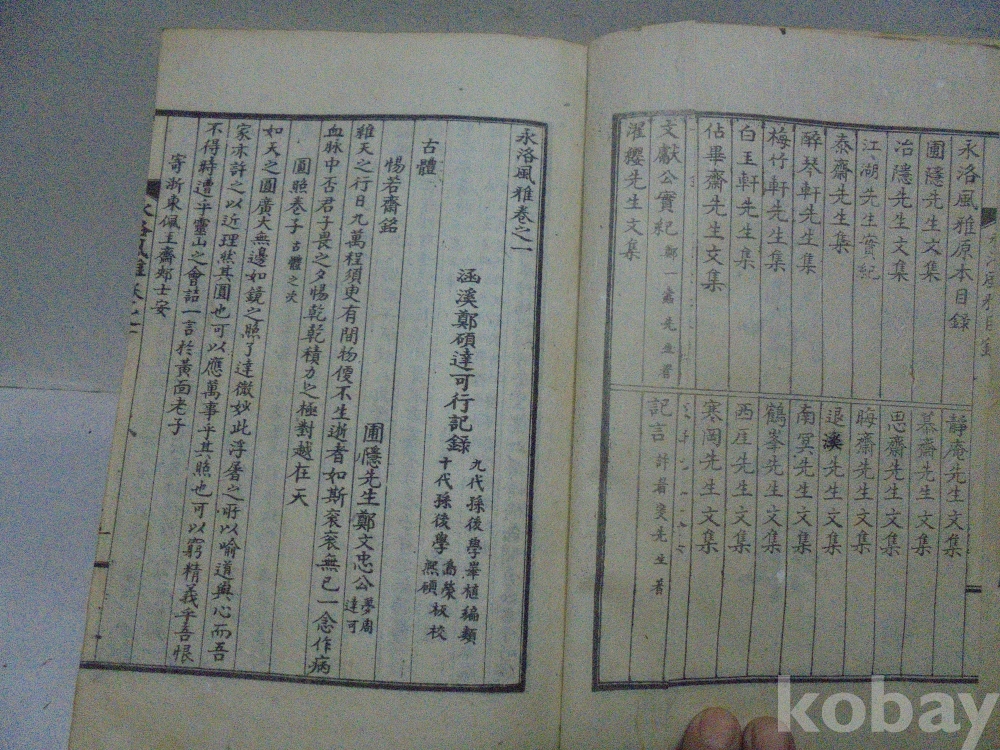 永洛風雅原本目錄
圃隱先生文集
冶隱先生文集
江湖先生實紀
泰齋先生集
醉琴軒先生集
梅竹軒先生集
白玉軒先生集
佔畢齋先生文集
文獻公實紀 鄭一蠹先生著
濯纓先生文集
靜庵先生文集
慕齋先生文集
思齋先生文集
晦齋先生文集
退溪先生文集
南冥先生文集
鶴峯先生文集
西厓先生文集
寒岡先生文集
記言 許眉叟先生著
永洛風雅卷之一
涵溪鄭碩達可行記錄
九代孫後學畢植編類
十代孫後學
校
古體
圃隱先生鄭文忠公 夢周 達可
惕若齋銘
雖天之行日九萬程須臾有間物便不生逝者如斯衮衮無已一念作病
血脉中否君子畏之夕惕乾乾積力之極對越在天
圓照卷子 古體之次
如天之圓廣大無邊如鏡之照了達微妙此浮屠之所以喻道與心而吾
家亦許之以近理然其圓也可以應萬事乎其照也可以窮精義乎吾恨
不得時遭乎靈山之會詰一言於黃面老子
寄浙東佩玉齋郯士安
kobay